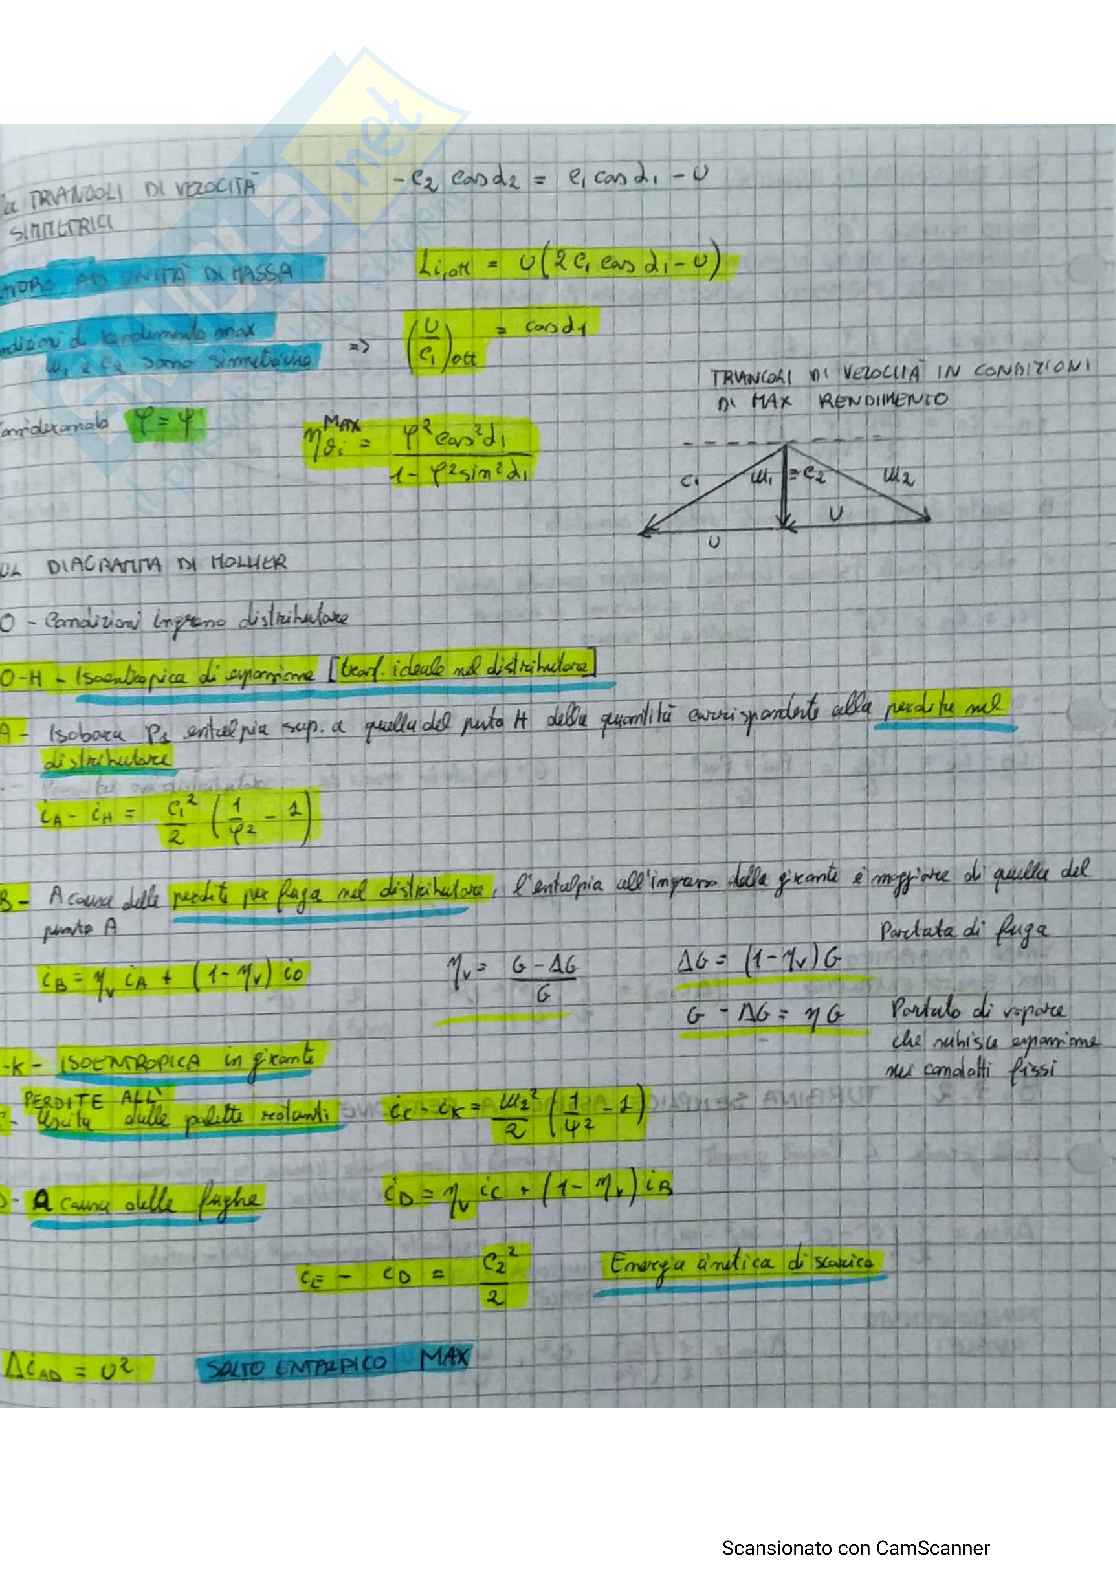 TRIANGOLI DI VELOCITÀ
SIMMETRICI
-c₂ cosα₂ = c₁ cosα₁ - U
AD UNITÀ DI MASSA
Li,ott = U(2c₁ cosα₁ - U)
di rendimento max
w₁ e c₂ sono simmetriche
=> (U/c₁)ott = cosα₁
φ = ψ
ηθi MAX = φ² cos²α₁ / 1 - φ² sin²α₁
TRIANGOLI DI VELOCITÀ IN CONDIZIONI
DI MAX RENDIMENTO
c₁ w₁ = c₂ w₂
U
U
DIAGRAMMA DI MOLLIER
O - Condizioni ingresso distributore
O-H - Isoentropica di espansione [trasf. ideale nel distributore]
A - Isobara P₁ entalpia sup. a quella del punto H della quantità corrispondente alla perdite nel
distributore
iA - iH = c₁²/2 (1/φ² - 1)
B - A causa delle perdite per fuga nel distributore, l'entalpia all'ingresso della girante è maggiore di quella del
punto A
iB = ηv iA + (1 - ηv) io
ηv = G - ΔG / G
ΔG = (1 - ηv) G
Portata di fuga
G - ΔG = η G
Portata di vapore
che subisce espansione
nei condotti fissi
-K - ISOENTROPICA in girante
PERDITE ALL'
Uscita dalle palette rotanti
iC - iK = w₂²/2 (1/ψ² - 1)
- A causa delle fughe
iD = ηv iC + (1 - ηv) iB
iE - iD = c₂²/2
Energia cinetica di scarico
ΔiAD = U²
SALTO ENTALPICO MAX
Scansionato con CamScanner